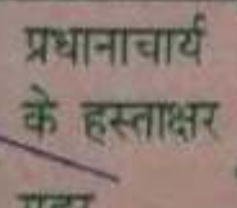 प्रधानाचार्य
के हस्ताक्षर